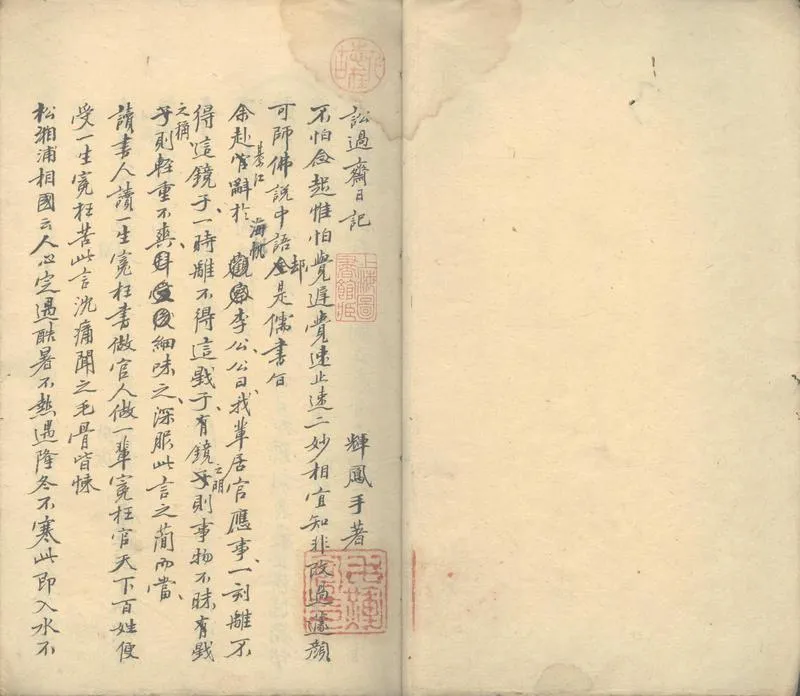 訟過齋日記 輝鳳手著
不怕念起惟怕覺遲覺速止速二妙相宜知非改過蘧顏
可師佛說中語却是儒書旨
余赴綦江辭於海帆李公公曰我輩居官應事一刻離不
得這鏡子一時離不得這戥子有鏡子之明則事物不昧有戥
子之稱則輕重不爽細味之深服此言之簡而當
讀書人讀一生寃枉書做官人做一輩寃枉官天下百姓便
受一生寃枉苦此言沈痛聞之毛骨皆悚
松湘浦相國云人心定遇酷暑不熱遇隆冬不寒此即入水不
上海圖書館藏